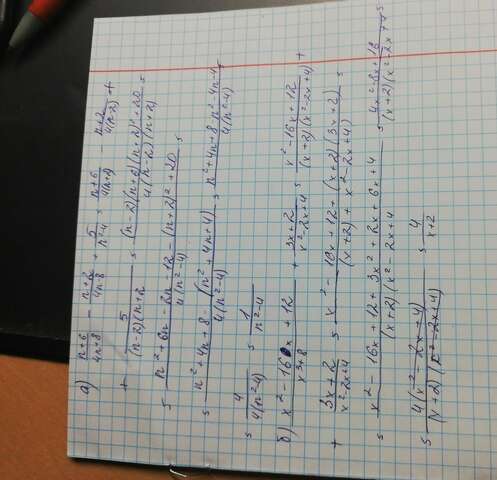 а) n+6/4n+8 - n+2/4n-8 + 5/n²-4 = n+6/4(n+2) - n+2/4(n-2) +
+ 5/(n-2)(n+2) = (n-2)(n+6)-(n+2)²+20/4(n-2)(n+2) =
= n²+6n-2n-12-(n+2)²+20/4(n²-4) =
= n²+4n+8-(n²+4n+4)/4(n²-4) = n²+4n+8-n²-4n-4/4(n²-4) =
= 4/4(n²-4) = 1/n²-4
б) x²-16x+12/x³+8 + 3x+2/x²-2x+4 = x²-16x+12/(x+2)(x²-2x+4) +
+ 3x+2/x²-2x+4 = x²-16x+12+(x+2)(3x+2)/(x+2)+x²-2x+4) =
= x²-16x+12+3x²+2x+6x+4/(x+2)(x²-2x+4) = 4x²-8x+16/(x+2)(x²-2x+4) =
= 4(x²-2x+4)/(x+2)(x²-2x+4) = 4/x+2